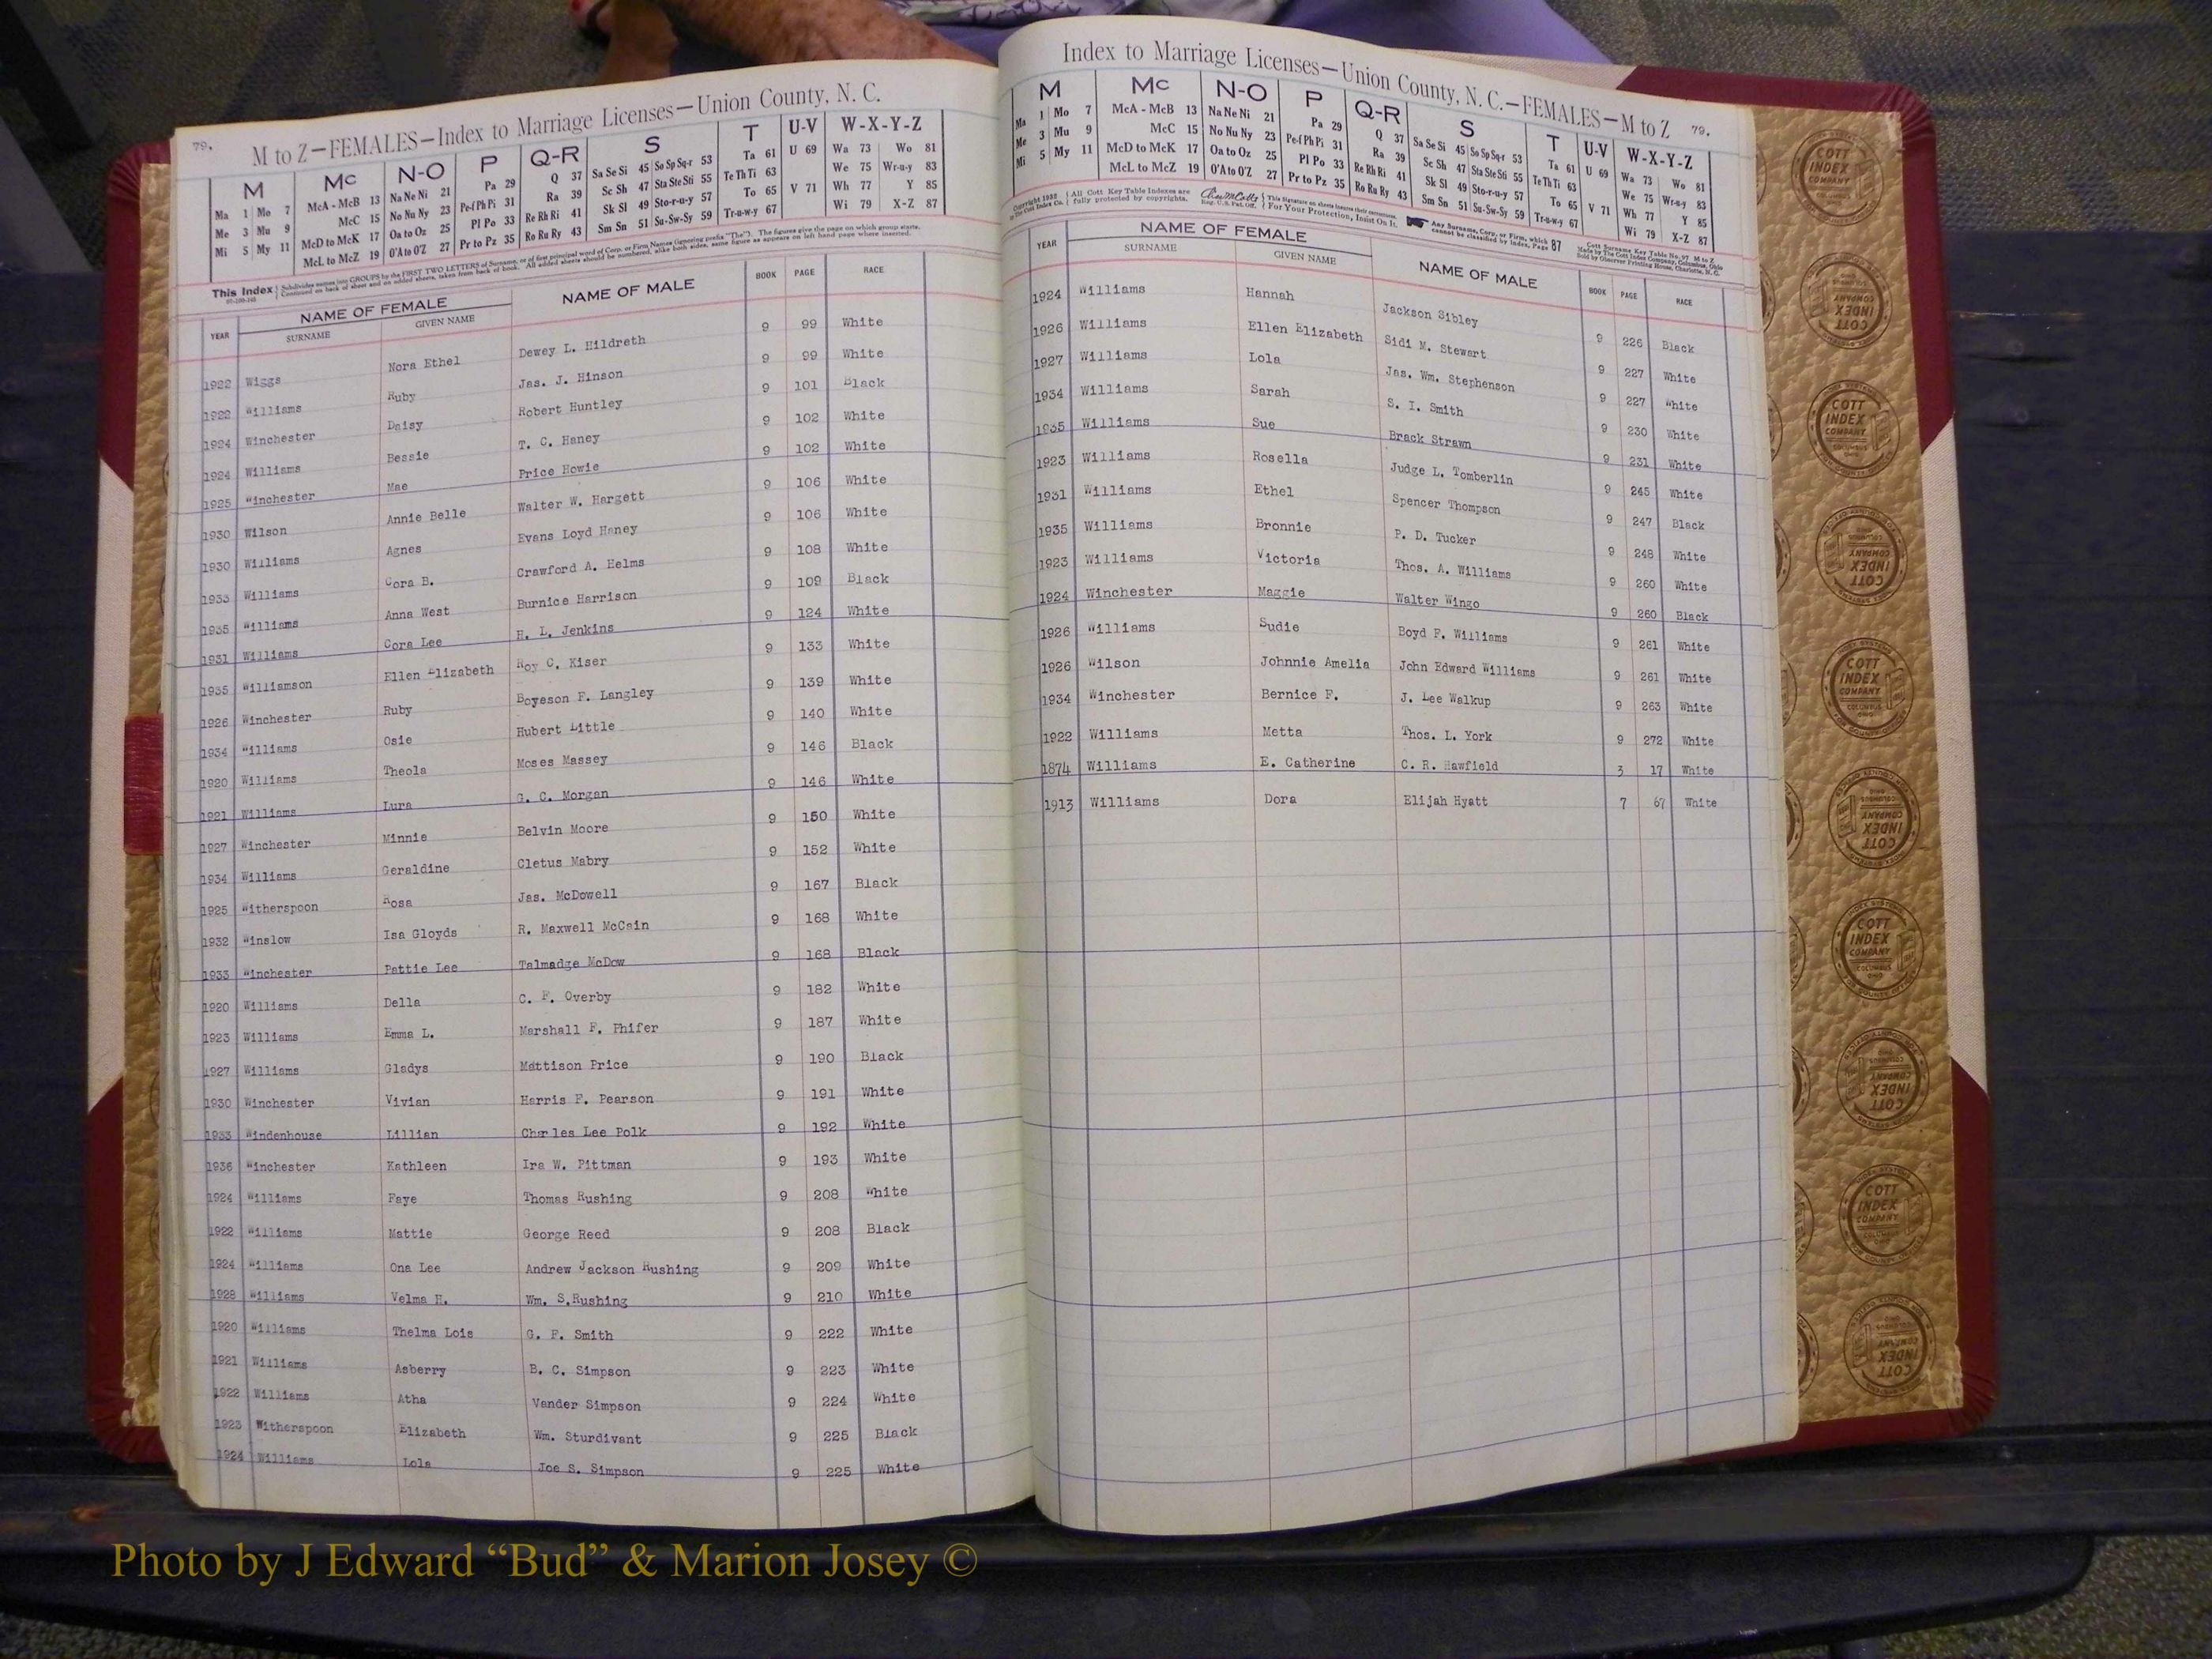 79.
M to Z—FEMALES—Index to Marriage Licenses—Union County, N. C.
M Mc N-O P Q-R S T U-V W-X-Y-Z
Ma 1 Mo 7 McA - McB 13 Na Ne Ni 21 Pa 29 Q 37 Sa Se Si 45 So Sp Sq-r 53 Ta 61 U 69 Wa 73 Wo 81
Me 3 Mu 9 McC 15 No Nu Ny 23 Pe-f Ph Pi 31 Ra 39 Sc Sh 47 Sta Ste Sti 55 Te Th Ti 63 We 75 Wr-u-y 83
Mi 5 My 11 McD to McK 17 Oa to Oz 25 Pl Po 33 Re Rh Ri 41 Sk Sl 49 Sto-r-u-y 57 To 65 V 71 Wh 77 Y 85
McL to McZ 19 O'A to O'Z 27 Pr to Pz 35 Ro Ru Ry 43 Sm Sn 51 Su-Sw-Sy 59 Tr-u-w-y 67 Wi 79 X-Z 87
This Index Subdivides names into GROUPS by the FIRST TWO LETTERS of Surname, or of first principal word of Corp. or Firm Names (ignoring prefix "The"). The figures give the page on which group starts.
Continued on back of sheet and on added sheets, taken from back of book. All added sheets should be numbered, alike both sides, same figure as appears on left hand page where inserted.
YEAR NAME OF FEMALE SURNAME GIVEN NAME NAME OF MALE BOOK PAGE RACE
1922 Wiggs Nora Ethel Dewey L. Hildreth 9 99 White
1922 Williams Ruby Jas. J. Hinson 9 99 White
1924 Winchester Daisy Robert Huntley 9 101 Black
1924 Williams Bessie T. C. Haney 9 102 White
1925 Winchester Mae Price Howie 9 102 White
1930 Wilson Annie Belle Walter W. Hargett 9 106 White
1930 Williams Agnes Evans Loyd Haney 9 106 White
1933 Williams Cora B. Crawford A. Helms 9 108 White
1935 Williams Anna West Burnice Harrison 9 109 Black
1931 Williams Cora Lee H. L. Jenkins 9 124 White
1935 Williamson Ellen Elizabeth Roy C. Kiser 9 133 White
1926 Winchester Ruby Boyeson F. Langley 9 139 White
1934 Williams Osie Hubert Little 9 140 White
1920 Williams Theola Moses Massey 9 146 Black
1921 Williams Lura G. C. Morgan 9 146 White
1927 Winchester Minnie Belvin Moore 9 150 White
1934 Williams Geraldine Cletus Mabry 9 152 White
1925 Witherspoon Rosa Jas. McDowell 9 167 Black
1932 Winslow Isa Gloyds R. Maxwell McCain 9 168 White
1933 Winchester Pattie Lee Talmadge McDow 9 168 Black
1920 Williams Della C. F. Overby 9 182 White
1923 Williams Emma L. Marshall F. Phifer 9 187 White
1927 Williams Gladys Mattison Price 9 190 Black
1930 Winchester Vivian Harris F. Pearson 9 191 White
1933 Windenhouse Lillian Charles Lee Polk 9 192 White
1936 Winchester Kathleen Ira W. Pittman 9 193 White
1924 Williams Faye Thomas Rushing 9 208 White
1922 Williams Mattie George Reed 9 208 Black
1924 Williams Ona Lee Andrew Jackson Rushing 9 209 White
1928 Williams Velma H. Wm. S.Rushing 9 210 White
1920 Williams Thelma Lois G. F. Smith 9 222 White
1921 Williams Asberry B. C. Simpson 9 223 White
1922 Williams Atha Vander Simpson 9 224 White
1923 Witherspoon Elizabeth Wm. Sturdivant 9 225 Black
1924 Williams Lola Joe S. Simpson 9 225 White
Index to Marriage Licenses—Union County, N. C.—FEMALES—M to Z 79.
M Mc N-O P Q-R S T U-V W-X-Y-Z
Ma 1 Mo 7 McA - McB 13 Na Ne Ni 21 Pa 29 Q 37 Sa Se Si 45 So Sp Sq-r 53 Ta 61 U 69 Wa 73 Wo 81
Me 3 Mu 9 McC 15 No Nu Ny 23 Pe-f Ph Pi 31 Ra 39 Sc Sh 47 Sta Ste Sti 55 Te Th Ti 63 We 75 Wr-u-y 83
Mi 5 My 11 McD to McK 17 Oa to Oz 25 Pl Po 33 Re Rh Ri 41 Sk Sl 49 Sto-r-u-y 57 To 65 V 71 Wh 77 Y 85
McL to McZ 19 O'A to O'Z 27 Pr to Pz 35 Ro Ru Ry 43 Sm Sn 51 Su-Sw-Sy 59 Tr-u-w-y 67 Wi 79 X-Z 87
Copyright 1932 The Cott Index Co. All Cott Key Table Indexes are fully protected by copyrights. Reg. U.S. Pat. Off. This Signature on sheets insures their correctness. For Your Protection, Insist On It. Any Surname, Corp. or Firm, which cannot be classified by Index, Page 87 Cott Surname Key Table No. 97 M to Z Made by The Cott Index Company, Columbus, Ohio Sold by Observer Printing House, Charlotte, N. C.
YEAR NAME OF FEMALE SURNAME GIVEN NAME NAME OF MALE BOOK PAGE RACE
1924 Williams Hannah Jackson Sibley 9 226 Black
1926 Williams Ellen Elizabeth Sidi M. Stewart 9 227 White
1927 Williams Lola Jas. Wm. Stephenson 9 227 White
1934 Williams Sarah S. I. Smith 9 230 White
1935 Williams Sue Brack Strawn 9 231 White
1923 Williams Rosella Judge L. Tomberlin 9 245 White
1931 Williams Ethel Spencer Thompson 9 247 Black
1935 Williams Bronnie P. D. Tucker 9 248 White
1923 Williams Victoria Thos. A. Williams 9 260 White
1924 Winchester Maggie Walter Wingo 9 260 Black
1926 Williams Sudie Boyd F. Williams 9 261 White
1926 Wilson Johnnie Amelia John Edward Williams 9 261 White
1934 Winchester Bernice F. J. Lee Walkup 9 263 White
1922 Williams Metta Thos. L. York 9 272 White
1874 Williams E. Catherine C. R. Hawfield 3 17 White
1913 Williams Dora Elijah Hyatt 7 67 White
COTT INDEX COMPANY
COLUMBUS OHIO
Photo by J Edward “Bud” & Marion Josey ©